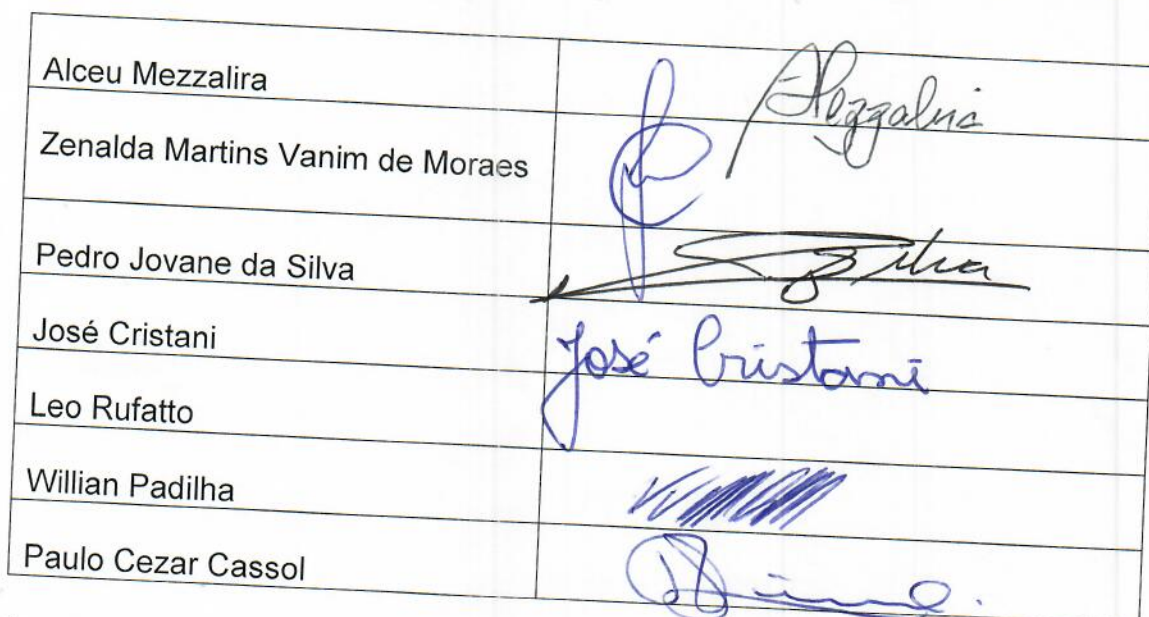 Alceu Mezzalira
Mezzalira
Zenalda Martins Vanim de Moraes
Pedro Jovane da Silva
Silva
José Cristani
José Cristani
Leo Rufatto
Willian Padilha
Paulo Cezar Cassol